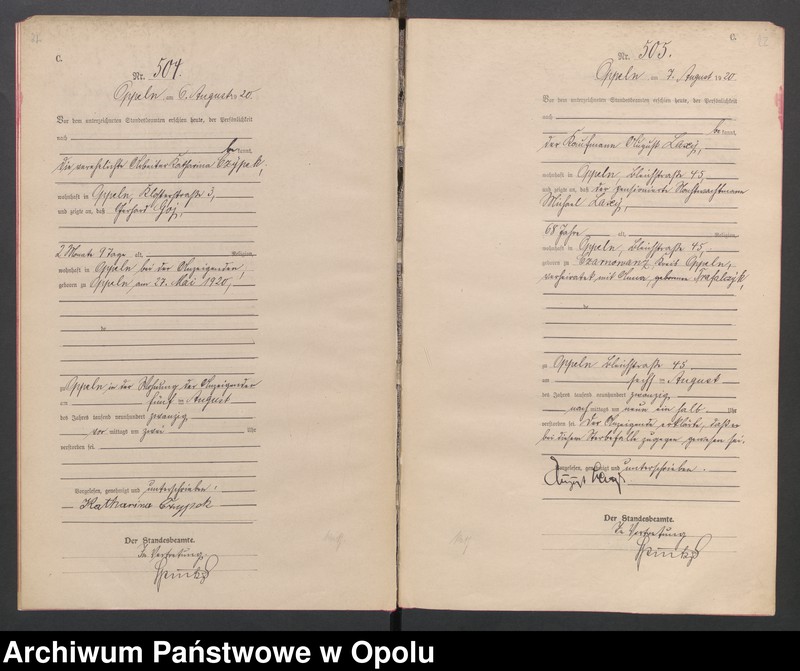 C.
Nr. 504.
Oppeln am 6. August 1920.
Vor dem unterzeichneten Standesbeamten erschien heute, der Persönlichkeit
nach
bekannt,
die verehelichte Arbeiter Katharina Czypek,
wohnhaft in Oppeln, Klosterstraße 3,
und zeigte an, daß Gerhard Goj,
2 Monate 9 Tage alt, Religion,
wohnhaft in Oppeln bei der Anzeigenden,
geboren zu Oppeln am 27. Mai 1920,
de
zu Oppeln, in der Wohnung der Anzeigenden
am fünf = August
des Jahres tausend neunhundert zwanzig
vor mittags um zwei Uhr
verstorben sei.
Vorgelesen, genehmigt und unterschrieben.
Katharina Czypek
Der Standesbeamte.
In Vertretung.
C.
Nr. 505.
Oppeln am 7. August 1920.
Vor dem unterzeichneten Standesbeamten erschien heute, der Persönlichkeit
nach
bekannt,
der Kaufmann August
wohnhaft in Oppeln, Bleichstraße 45,
und zeigte an, daß der pensionierte Nachtwachtmann
Michael
68 Jahre alt, Religion,
wohnhaft in Oppeln, Bleichstraße 45,
geboren zu Czarnowanz, Kreis Oppeln,
verheiratet mit Anna, geborenen
de
zu Oppeln Bleichstraße 45
am sechs = August
des Jahres tausend neunhundert zwanzig
nach mittags um neun ein halb Uhr
verstorben sei. Der Anzeigende erklärte, daß er
bei diesem Sterbefalle zugegen gewesen sei.
Vorgelesen, genehmigt und unterschrieben.
August
Der Standesbeamte.
In Vertretung
Archiwum Państwowe w Opolu